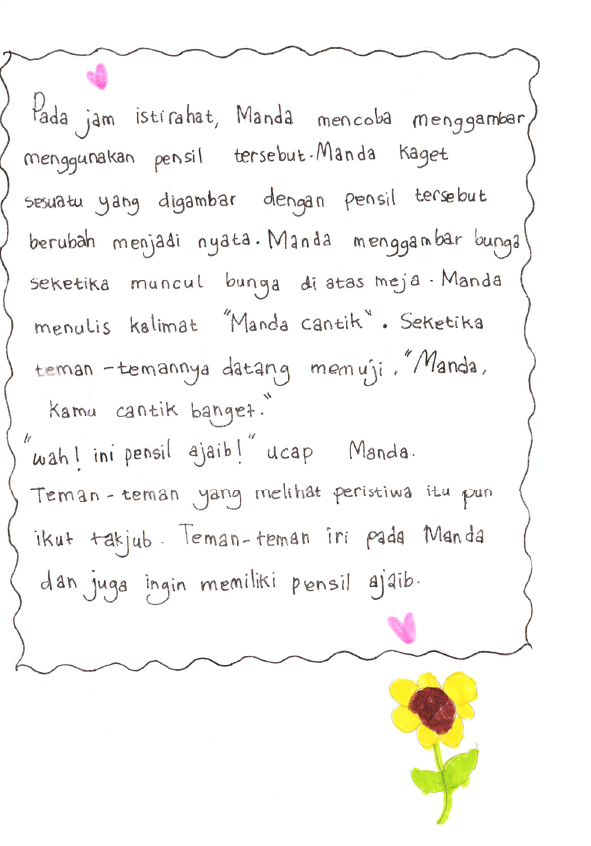 Pada jam istirahat, Manda mencoba menggambar
menggunakan pensil tersebut. Manda kaget
sesuatu yang digambar dengan pensil tersebut
berubah menjadi nyata. Manda menggambar bunga
seketika muncul bunga di atas meja. Manda
menulis kalimat "Manda cantik". Seketika
teman-temannya datang memuji, "Manda,
kamu cantik banget."
"wah! ini pensil ajaib!" ucap Manda.
Teman-teman yang melihat peristiwa itu pun
ikut takjub. Teman-teman iri pada Manda
dan juga ingin memiliki pensil ajaib.